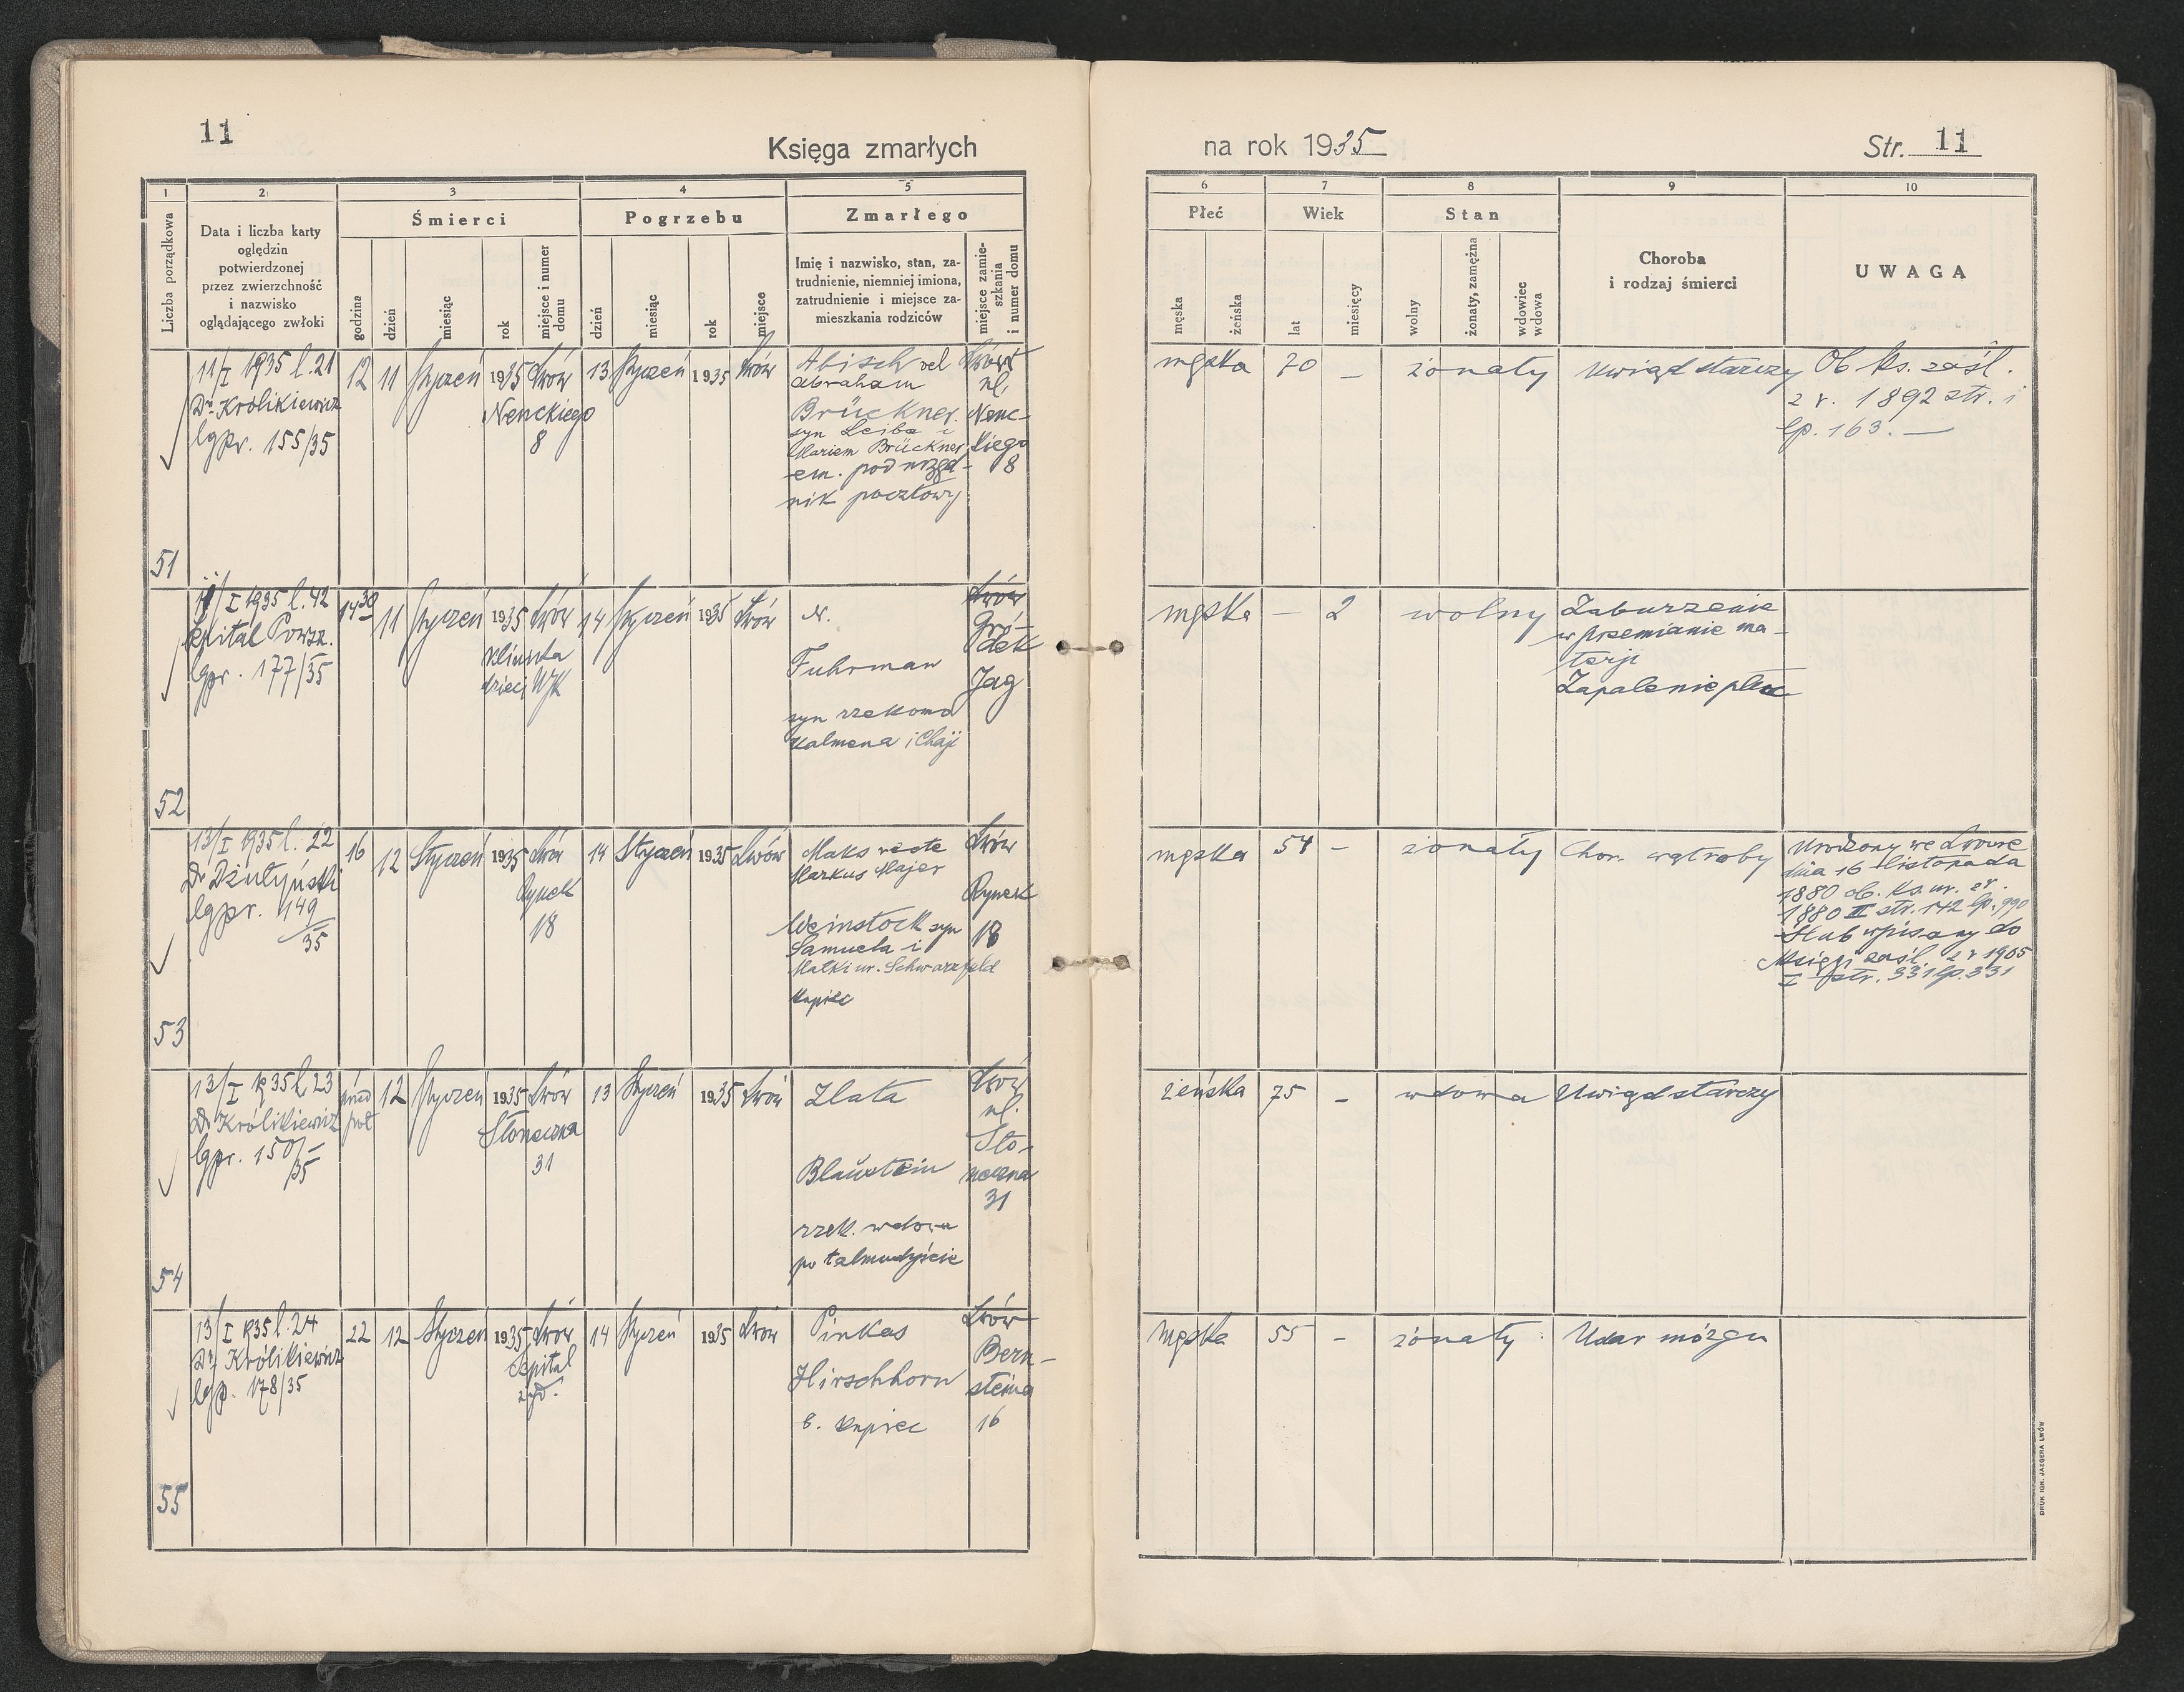 11
Księga zmarłych
na rok 1935
Str. 11
1
2
3
4
5
6
7
8
9
10
Liczba porządkowa
Data i liczba karty
oględzin
potwierdzonej
przez zwierzchność
i nazwisko
oglądającego zwłoki
Śmierci
godzina
dzień
miesiąc
rok
miejsce i numer
domu
Pogrzebu
dzień
miesiąc
rok
miejsce
Zmarłego
Imię i nazwisko, stan, za-
trudnienie, niemniej imiona,
zatrudnienie i miejsce za-
mieszkania rodziców
miejsce zamie-
szkania
i numer domu
Płeć
męska
żeńska
Wiek
lat
miesięcy
Stan
wolny
żonaty, zamężna
wdowiec
wdowa
Choroba
i rodzaj śmierci
UWAGA
51
11/I 1935 l. 21
Dr Królikiewicz
lgpr. 155/35
12
11
Styczeń
1935
Lwów
Nenckiego
8
13
Styczeń
1935
Lwów
Abisch vel
Abraham
Brückner
syn Leiba i
Mariem Brückner
em. podurzęd-
nik pocztowy
Lwów
ul.
Nenc-
kiego
8
męska
70
-
żonaty
Uwiąd starczy
Ob ks. zaśl.
z r. 1892 str. i
lp. 163. —
52
11/I 1935 l. 42
Szpital Powsz.
lgpr. 177/35
14 30
11
Styczeń
1935
Lwów
Klinika
dzieci UJK
14
Styczeń
1935
Lwów
N.
Fuhrman
syn rzekomo
Kalmena i Chaji
Lwów
Gró-
dek
Jag
męska
-
2
wolny
Zaburzenie
w przemianie ma-
terji
Zapalenie płuc
53
13/I 1935 l. 22
Dr Dżułyński
lgpr. 149
/35
16
12
Styczeń
1935
Lwów
Rynek
18
14
Styczeń
1935
Lwów
Maks recte
Markus Majer
Weinstock syn
Samuela i
Matki ur. Schwarzfeld
kupiec
Lwów
Rynek
18
męska
54
-
żonaty
Chor. wątroby
Urodzony we Lwowie
dnia 16 listopada
1880 ob. ks. ur. z r.
1880 II str. 142 lp. 990
Ślub wpisany do
Księgi zaśl. z r 1905
I str. 331 lp. 331
54
13/I 1935 l. 23
Dr Królikiewicz
lgpr. 150/
35
przed
poł
12
Styczeń
1935
Lwów
Słoneczna
31
13
Styczeń
1935
Lwów
Zlata
Blaustein
rzek. wdowa
po talmudyście
Lwów
ul.
Sło-
neczna
31
żeńska
75
-
wdowa
Uwiąd starczy
55
13/I 1935 l. 24
Dr Królikiewicz
lgp. 178/35
22
12
Styczeń
1935
Lwów
Szpital
żyd.
14
Styczeń
1935
Lwów
Pinkas
Hirschhorn
b. kupiec
Lwów
Bern-
steina
16
męska
55
-
żonaty
Udar mózgu
DRUK IGN. JAEGERA LWÓW